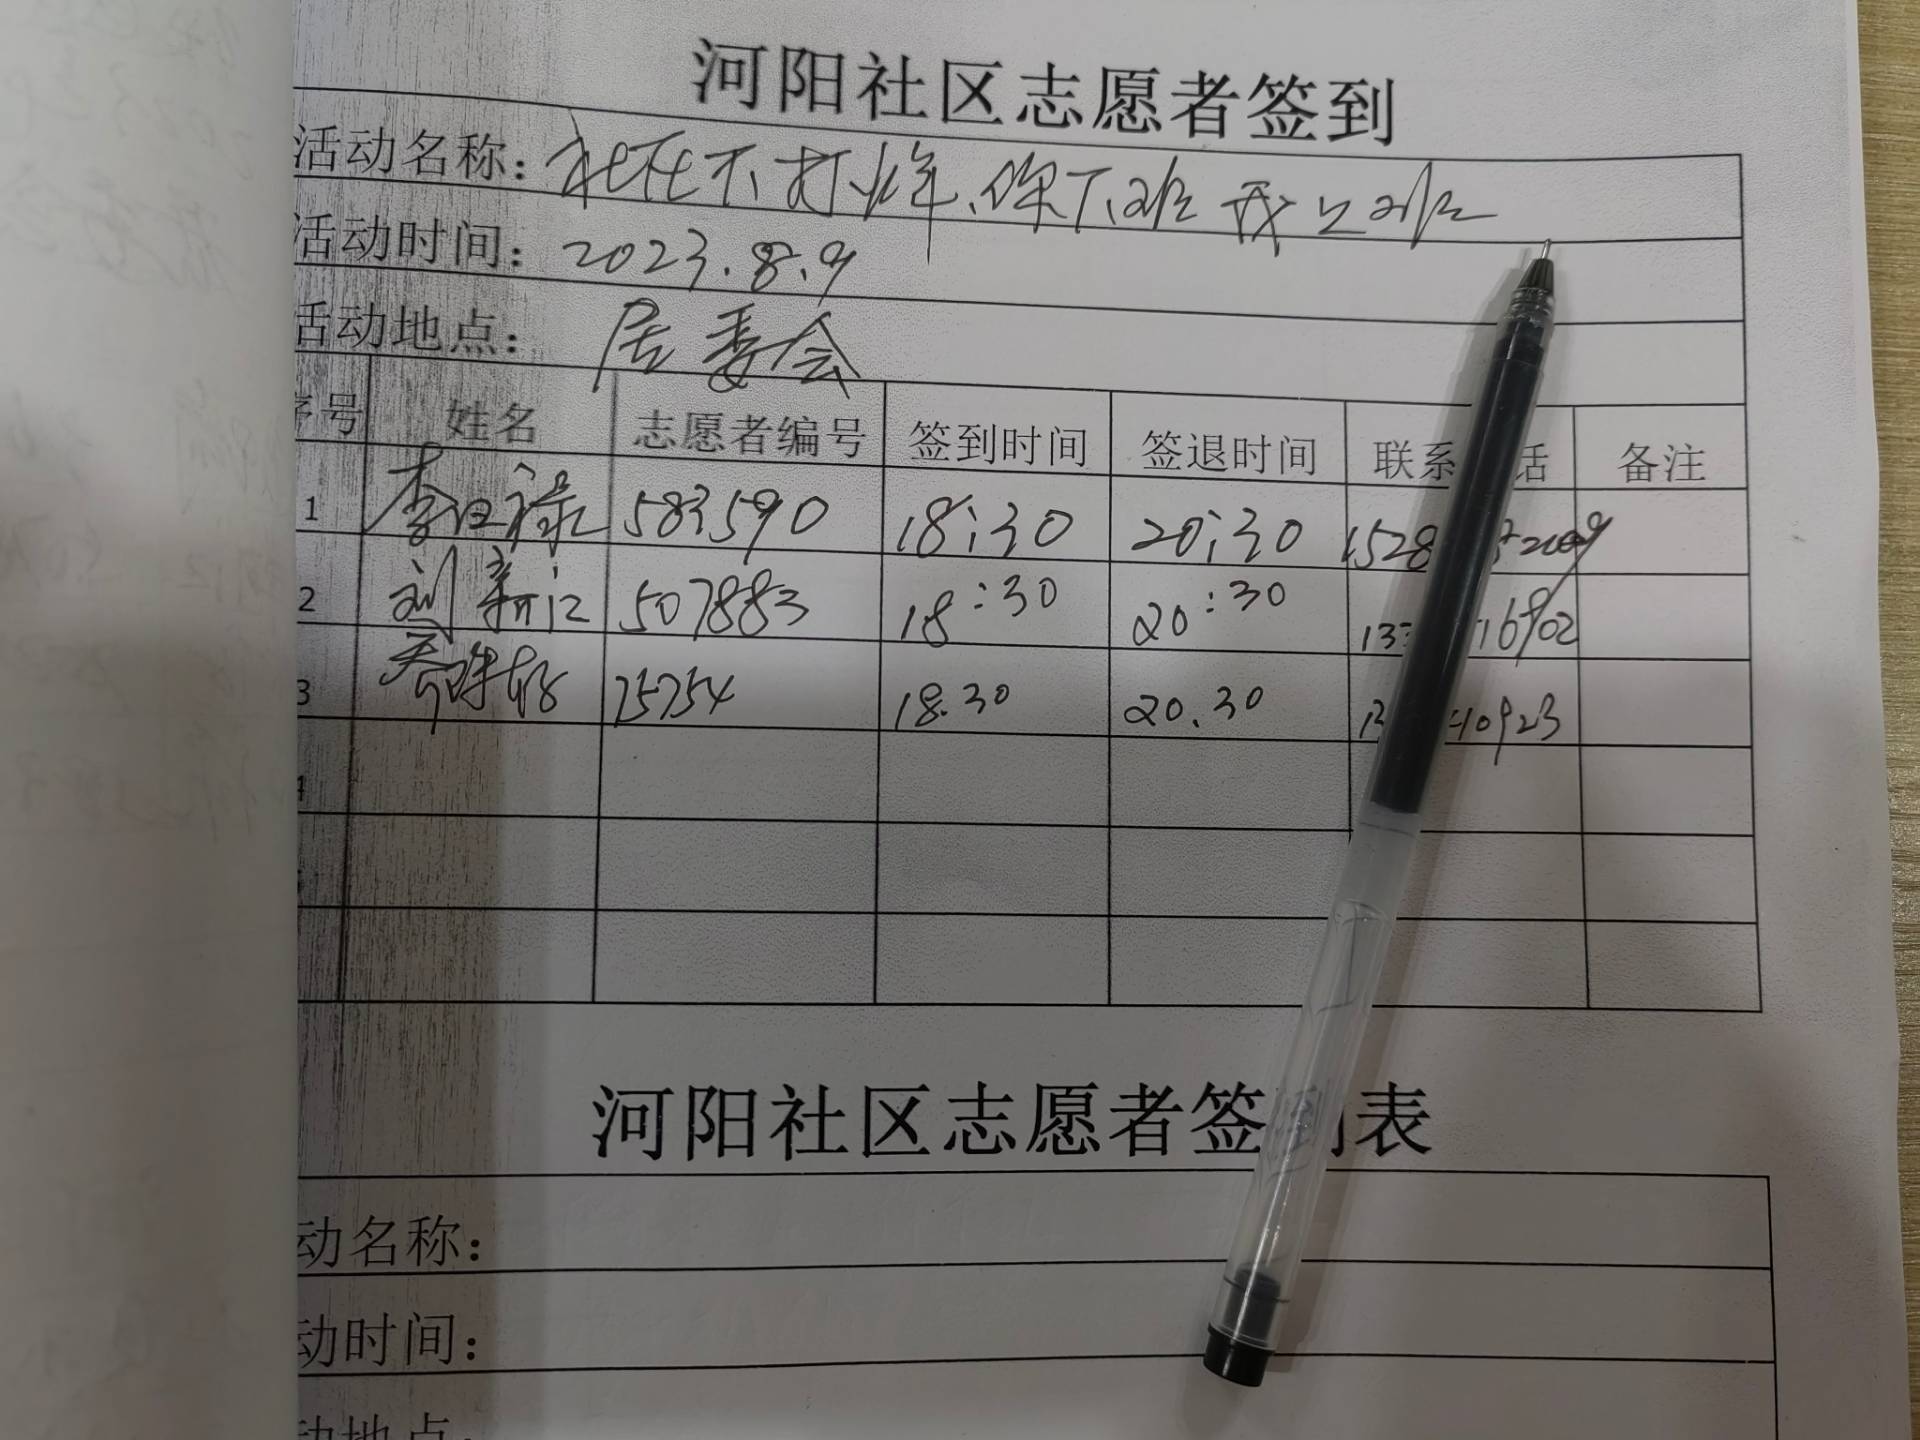 河阳社区志愿者签到
活动名称：社区不打烊、你下班我上班
活动时间：2023.8.9
活动地点：居委会
序号 姓名 志愿者编号 签到时间 签退时间 联系 话 备注
1 李汉禄 583590 18:30 20:30 1528 2009
2 刘新江 507883 18:30 20:30 133 16902
3 75754 18.30 20.30 10923
4
河阳社区志愿者签 表
动名称：
动时间：
动地点：